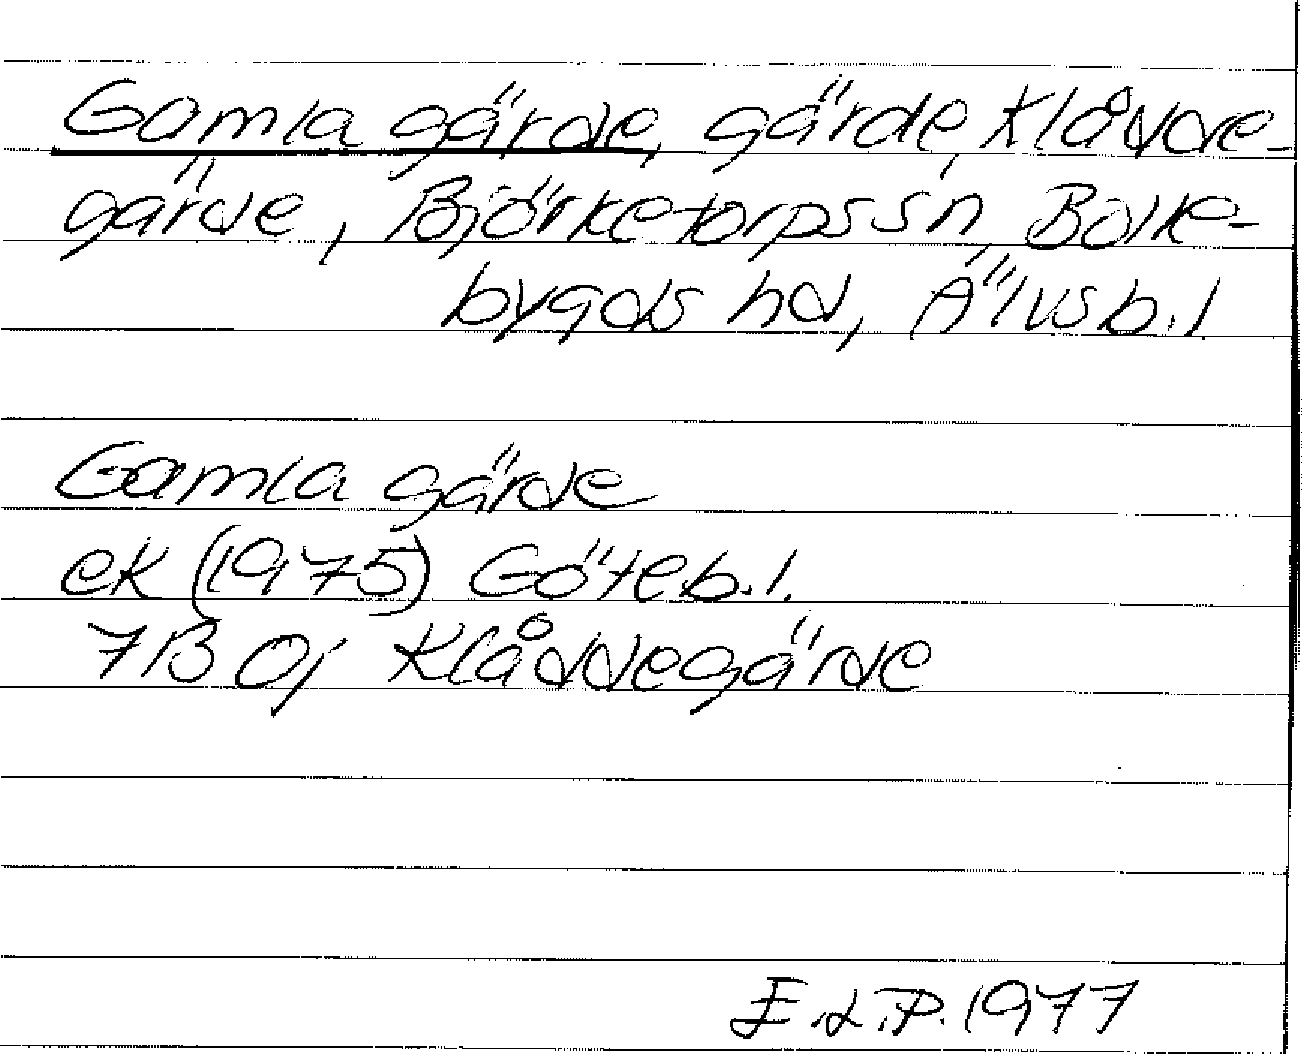 Gamla gärde, gärde, Klådde-
gärde, Björketorps sn, Bolle-
bygds hd, Älvsb.l
Gamla gärde
ek (1975) Göteb.l.
7B 0j Klåddegärde
E.L.P. 1977